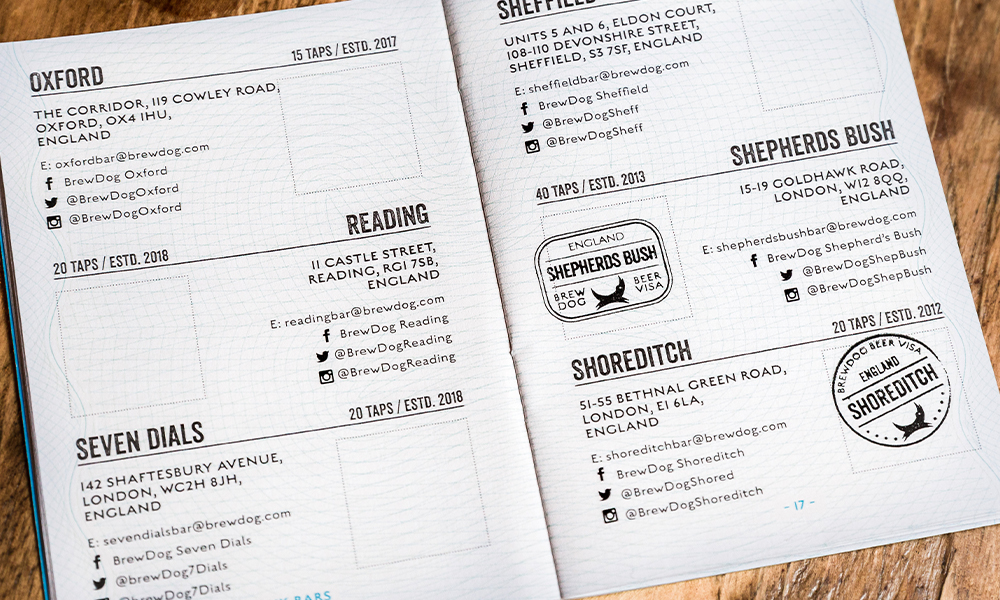 OXFORD
15 TAPS / ESTD. 2017
THE CORRIDOR, 119 COWLEY ROAD,
OXFORD, OX4 1HU,
ENGLAND
E: oxfordbar@brewdog.com
BrewDog Oxford
@BrewDogOxford
@BrewDogOxford
READING
20 TAPS / ESTD. 2018
11 CASTLE STREET,
READING, RG1 7SB,
ENGLAND
E: readingbar@brewdog.com
BrewDog Reading
@BrewDogReading
@BrewDogReading
SEVEN DIALS
20 TAPS / ESTD. 2018
142 SHAFTESBURY AVENUE,
LONDON, WC2H 8JH,
ENGLAND
E: sevendialsbar@brewdog.com
BrewDog Seven Dials
@brewDog7Dials
@brewDog7Dials
BARS
SHEFFIELD
UNITS 5 AND 6, ELDON COURT,
108-110 DEVONSHIRE STREET,
SHEFFIELD, S3 7SF, ENGLAND
E: sheffieldbar@brewdog.com
BrewDog Sheffield
@BrewDogSheff
@BrewDogSheff
SHEPHERDS BUSH
40 TAPS / ESTD. 2013
15-19 GOLDHAWK ROAD,
LONDON, W12 8QQ,
ENGLAND
E: shepherdsbushbar@brewdog.com
BrewDog Shepherd's Bush
@BrewDogShepBush
@BrewDogShepBush
ENGLAND
SHEPHERDS BUSH
BREW DOG
BEER VISA
SHOREDITCH
20 TAPS / ESTD. 2012
51-55 BETHNAL GREEN ROAD,
LONDON, E1 6LA,
ENGLAND
E: shoreditchbar@brewdog.com
BrewDog Shoreditch
@BrewDogShored
@BrewDogShoreditch
BREWDOG BEER VISA
ENGLAND
SHOREDITCH
- 17 -